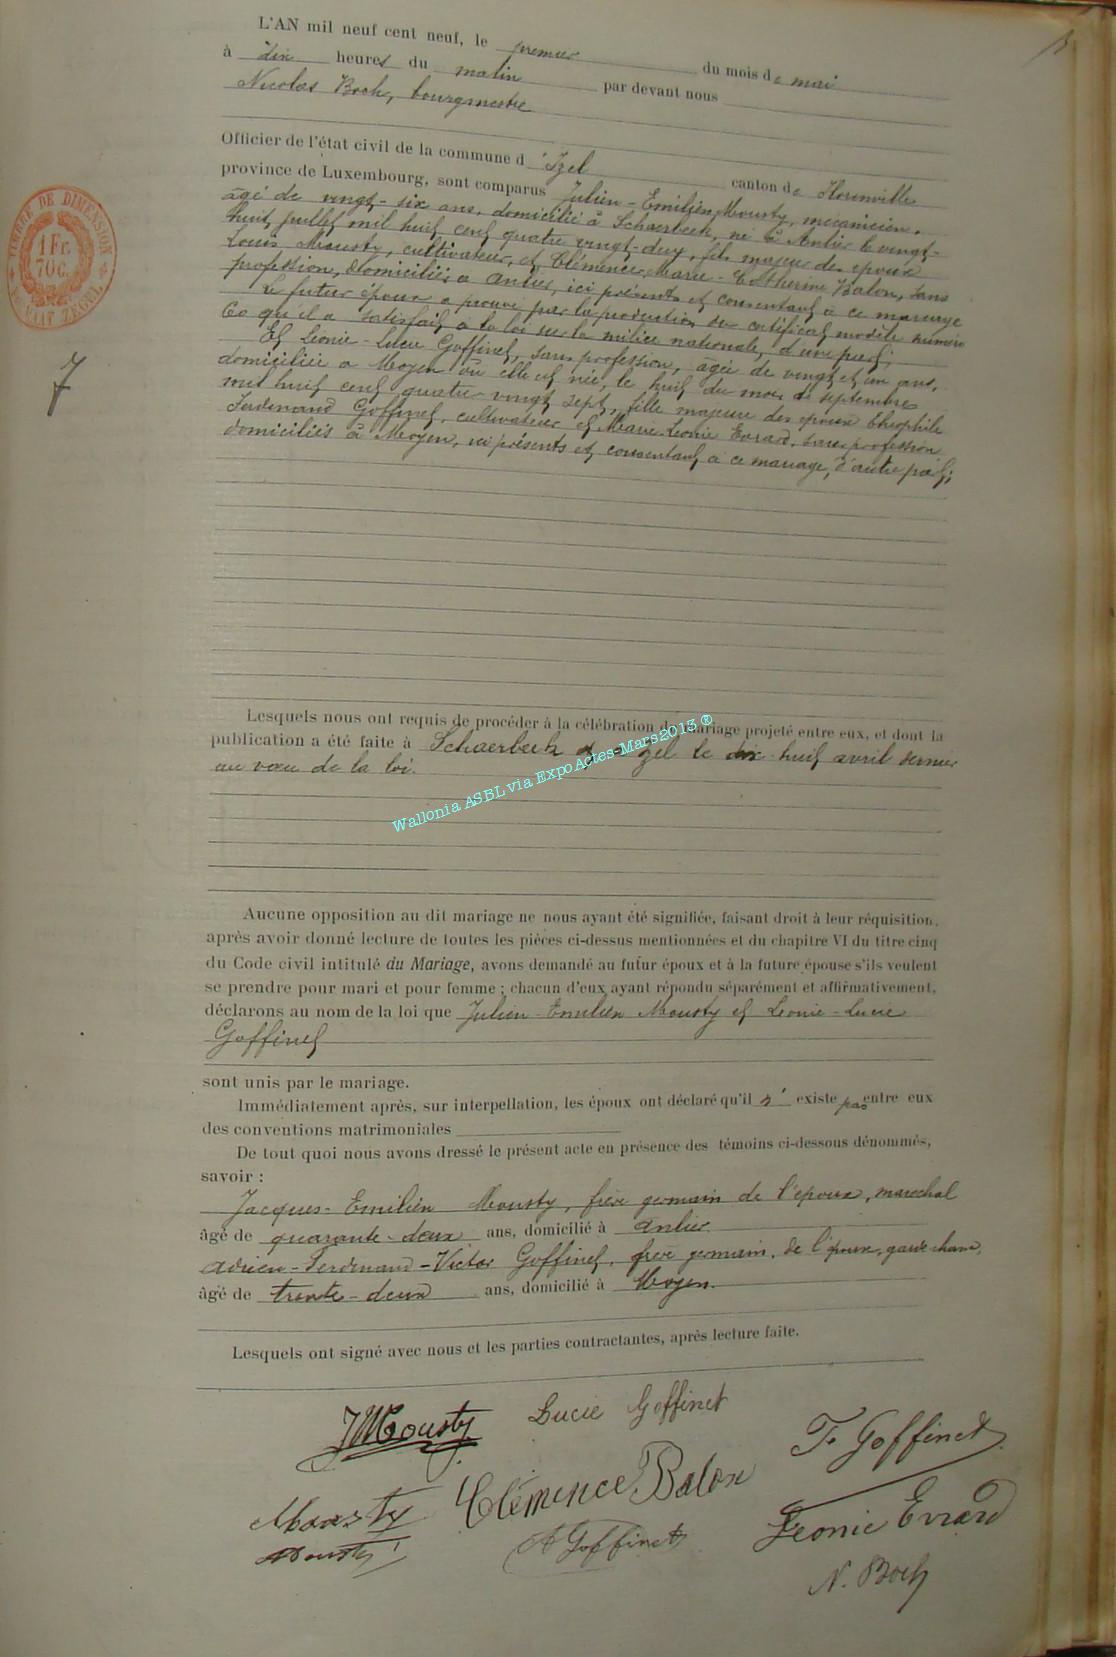 L'AN mil neuf cent neuf, le premier du mois de mai
à dix heures du matin par devant nous
Nicolas Boch, bourgmestre
Officier de l'état civil de la commune d'Izel canton de Florenville
province de Luxembourg, sont comparus Julien-Emilien Mousty, mécanicien,
âgé de vingt-six ans, domicilié à Schaerbeek, né à Anlier le vingt-
huit juillet mil huit cent quatre vingt-deux, fils majeur des époux
Louis Mousty, cultivateur, et Clémence, Marie-Catherine Balon, sans
profession, domiciliés à Anlier, ici présents et consentant à ce mariage
Le futur époux a prouvé par la production du certificat modèle numéro
qu'il a satisfait à la loi sur la milice nationale, d'une part;
Et Léonie-Lucie Goffinet, sans profession, âgée de vingt et un ans,
domiciliée à Moyen où elle est née, le huit du mois de septembre
mil huit cent quatre vingt sept, fille majeure des époux Théophile
Ferdinand Goffinet, cultivateur et Marie-Léonie Evrard, sans profession
domiciliés à Moyen, ici présents et consentant à ce mariage, d'autre part;
7
TIMBRE DE DIMENSION
1 Fr.
70c.
ZEGEL
Lesquels nous ont requis de procéder à la célébration du mariage projeté entre eux, et dont la
publication a été faite à Schaerbeek et Izel le dix-huit avril dernier
au vœu de la loi.
Wallonia ASBL via ExpoActes-Mars2013 ®
Aucune opposition au dit mariage ne nous ayant été signifiée, faisant droit à leur réquisition,
après avoir donné lecture de toutes les pièces ci-dessus mentionnées et du chapitre VI du titre cinq
du Code civil intitulé du Mariage, avons demandé au futur époux et à la future épouse s'ils veulent
se prendre pour mari et pour femme ; chacun d'eux ayant répondu séparément et affirmativement,
déclarons au nom de la loi que Julien-Emilien Mousty et Léonie-Lucie
Goffinet
sont unis par le mariage.
Immédiatement après, sur interpellation, les époux ont déclaré qu'il n'existe pas entre eux
des conventions matrimoniales
De tout quoi nous avons dressé le présent acte en présence des témoins ci-dessous dénommés,
savoir :
Jacques-Emilien Mousty, frère germain de l'époux, maréchal
âgé de quarante-deux ans, domicilié à Anlier
Adrien-Ferdinand-Victor Goffinet, frère germain de l'épouse, garde chasse,
âgé de trente-deux ans, domicilié à Moyen.
Lesquels ont signé avec nous et les parties contractantes, après lecture faite.
JMousty Lucie Goffinet
F Goffinet
Mousty Clémence Balon
Mousty A Goffinet Léonie Evrard
N. Boch